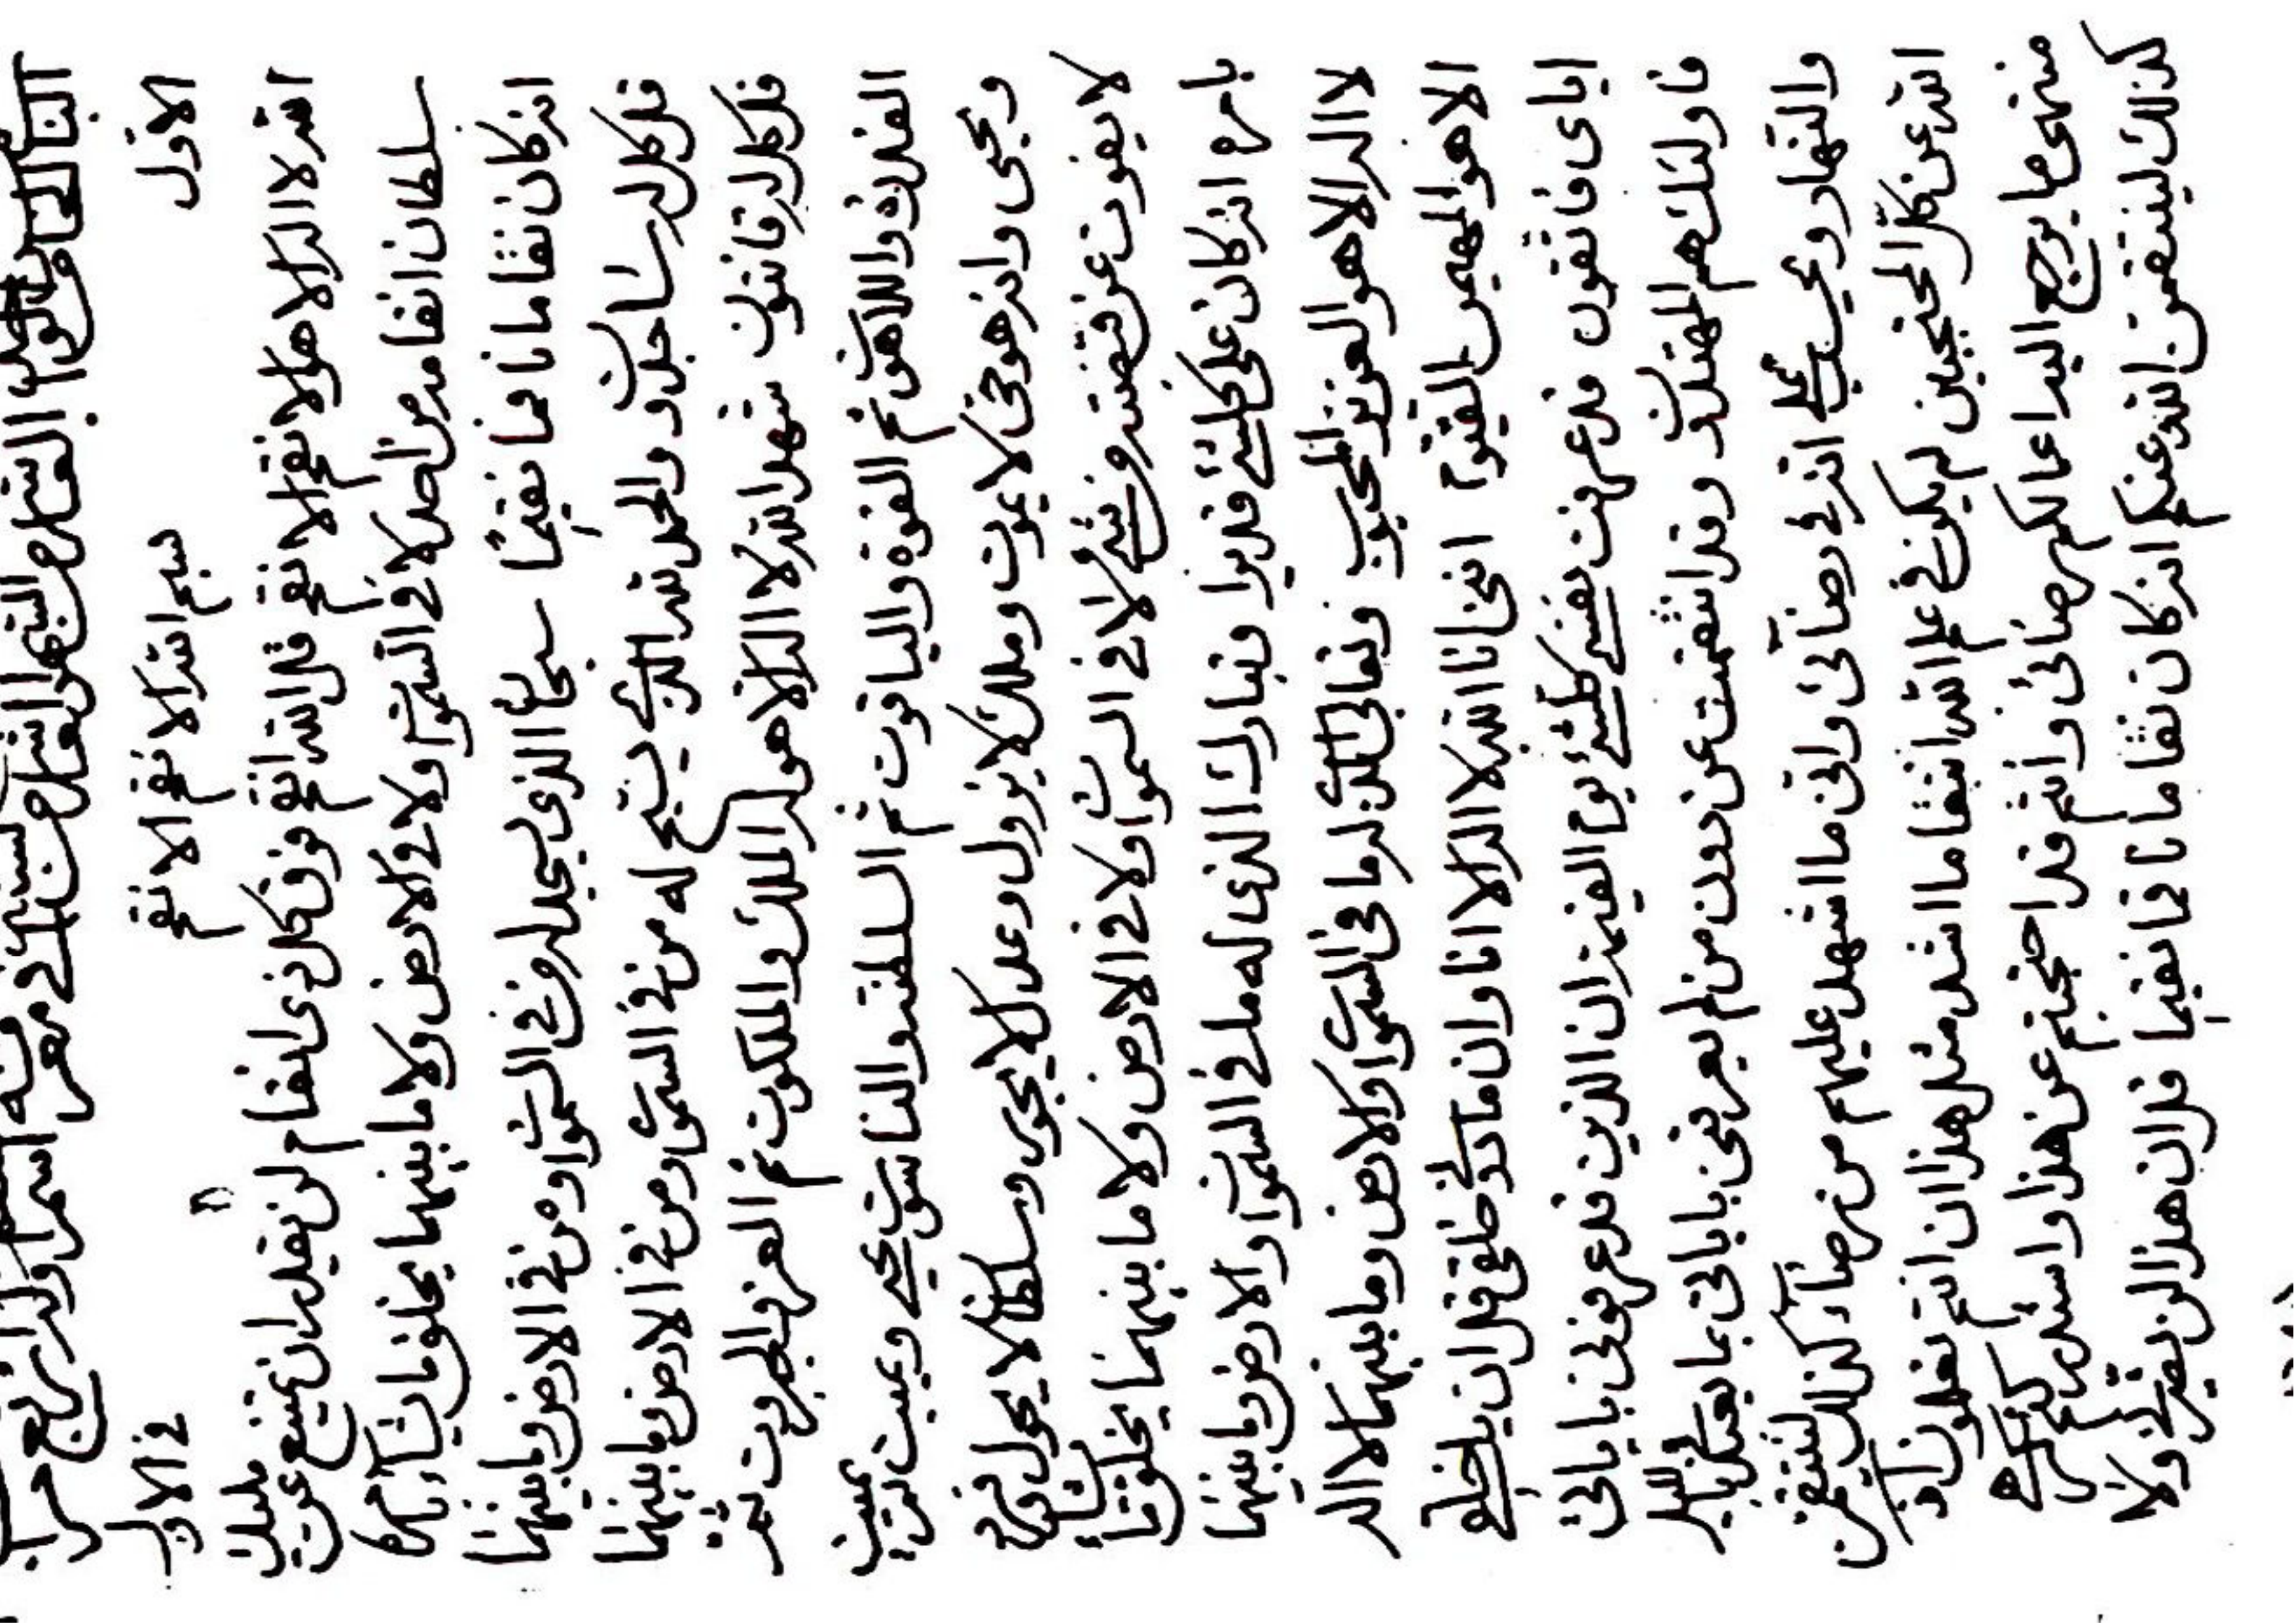 في معرفة اسم
الاول بسم الله الانقم الانقم في الاول
الله لا اله الا هو الانقم الانقم قل الله انقم فوق كل ذی انقام لن يقدر ان يمتنع عن مليك
سلطان انقامه من احد لا في السموات ولا في الارض ولا ما بينهما يخلق ما يشاء بامره
انه كان نقاما ناقما نقيما سبحان الذی يسجد له من في السموات ومن في الارض وما بينهما
قل كل له ساجدون والحمد لله الذی يسبح له من في السموات ومن في الارض وما بينهما
قل كل له قانتون شهد الله انه لا اله الا هو له الملك والملكوت ثم العز والجبروت ثم
القدرة واللاهوت ثم القوة والياقوت ثم السلطنة والناسوت يحيی ويميت ثم يميت
ويحيی وانه هو حی لا يموت وملك لا يزول وعدل لا يجور وسلطان لا يحول وفرد
لا يفوت عن قبضته من شیء لا في السموات ولا في الارض ولا ما بينهما يخلق ما يشاء
بامره انه كان علی كل شیء قديرا وتبارك الذی له ما في السموات والارض وما بينهما
لا اله الا هو العزيز المحبوب وتعالی الذی له ما في السموات والارض وما بينهما لا اله
الا هو المهيمن القيوم اننی انا الله لا اله الا انا وان ما دونی خلقی قل ان يا خلقی
ایای فاتقون قد عرفت نفسی كل شیء يوم القيمة ان الذين قد عرفونی باياتی
فاولئك هم المهتدون وقد انتقمت عن دون من لم يعرفنی باياتی بما يعبدنی بالليل
والنهار انه في رضائی وانی ما اشهد عليهم من رضاء كذلك لينتقمن
الله عن كل المحتجبين لم يكن في علم الله انتقاما اشد مثل هذا ان انتم تعلمون اذ
منتهی ما يرجع اليه اعمالكم رضائی وانتم قد احتجبتم عن هذا واشد
كذلك لينتقمن الله عنكم انه كان نقاما ناقما نقيما قل ان هذا لن ولا